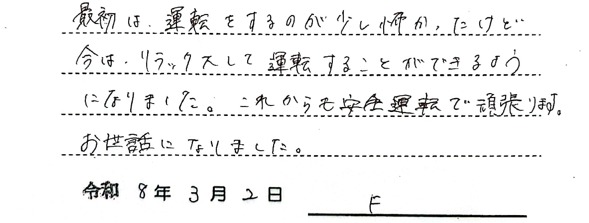 最初は、運転をするのが少し怖かったけど
今は、リラックスして運転することができるよう
になりました。これからも安全運転で頑張ります。
お世話になりました。
令和 8年 3月 2日 F